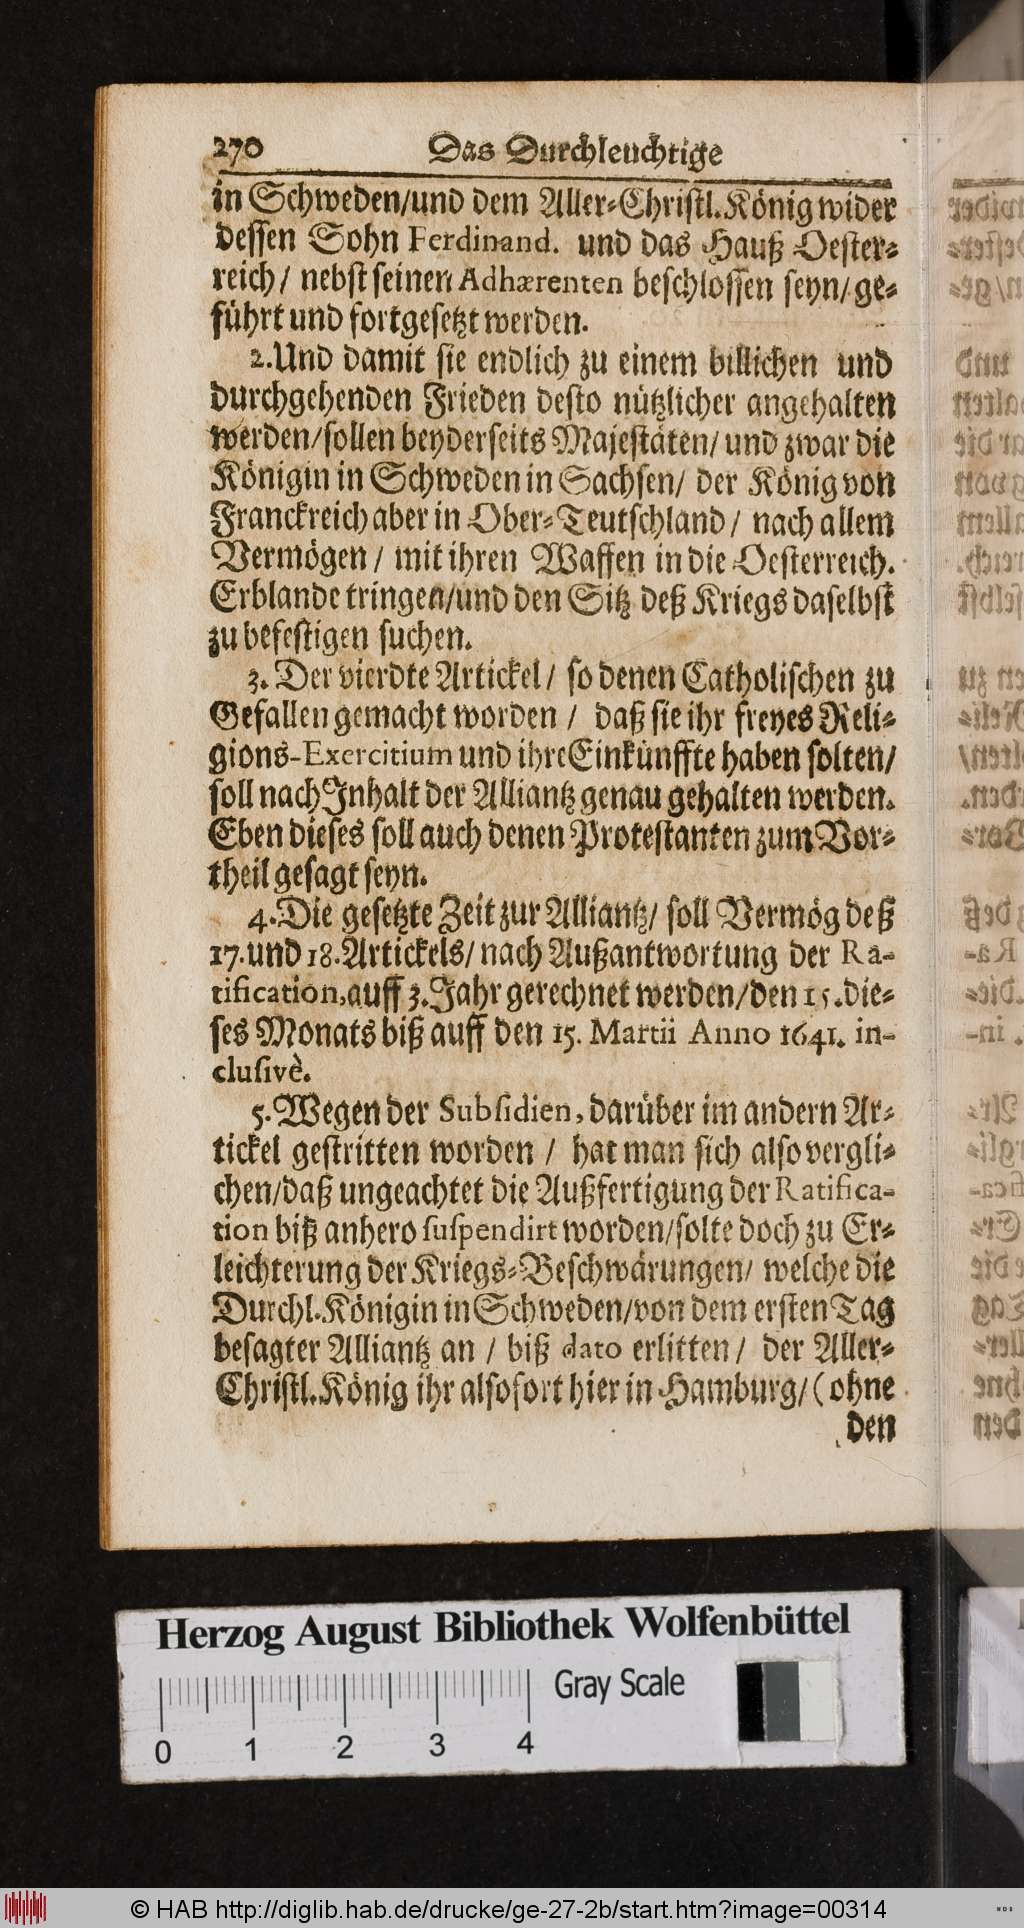 270 Das Durchleuchtige
in Schweden/und dem Aller-Christl. König wider
dessen Sohn Ferdinand. und das Hauß Oester-
reich/ nebst seinen Adhærenten beschlossen seyn/ ge-
führt und fortgesetzt werden.
2. Und damit sie endlich zu einem billichen und
durchgehenden Frieden desto nützlicher angehalten
werden/sollen beyderseits Majestäten/ und zwar die
Königin in Schweden in Sachsen/ der König von
Franckreich aber in Ober-Teutschland/ nach allem
Vermögen/ mit ihren Waffen in die Oesterreich.
Erblande tringen/und den Sitz deß Kriegs daselbst
zu befestigen suchen.
3. Der vierdte Artickel/ so denen Catholischen zu
Gefallen gemacht worden/ daß sie ihr freyes Reli-
gions-Exercitium und ihre Einkünffte haben solten/
soll nach Inhalt der Alliantz genau gehalten werden.
Eben dieses soll auch denen Protestanten zum Vor-
theil gesagt seyn.
4. Die gesetzte Zeit zur Alliantz/ soll Vermög deß
17. und 18. Artickels/ nach Außantwortung der Ra-
tification, auff 3. Jahr gerechnet werden/den 15. die-
ses Monats biß auff den 15. Martii Anno 1641. in-
clusivè.
5. Wegen der Subsidien, darüber im andern Ar-
tickel gestritten worden/ hat man sich also vergli-
chen/daß ungeachtet die Außfertigung der Ratifica-
tion biß anhero suspendirt worden/solte doch zu Er-
leichterung der Kriegs-Beschwärungen/ welche die
Durchl. Königin in Schweden/von dem ersten Tag
besagter Alliantz an/ biß dato erlitten/ der Aller-
Christl. König ihr alsofort hier in Hamburg/(ohne
den
Herzog August Bibliothek Wolfenbüttel
Gray Scale
0 1 2 3 4
© HAB http://diglib.hab.de/drucke/ge-27-2b/start.htm?image=00314